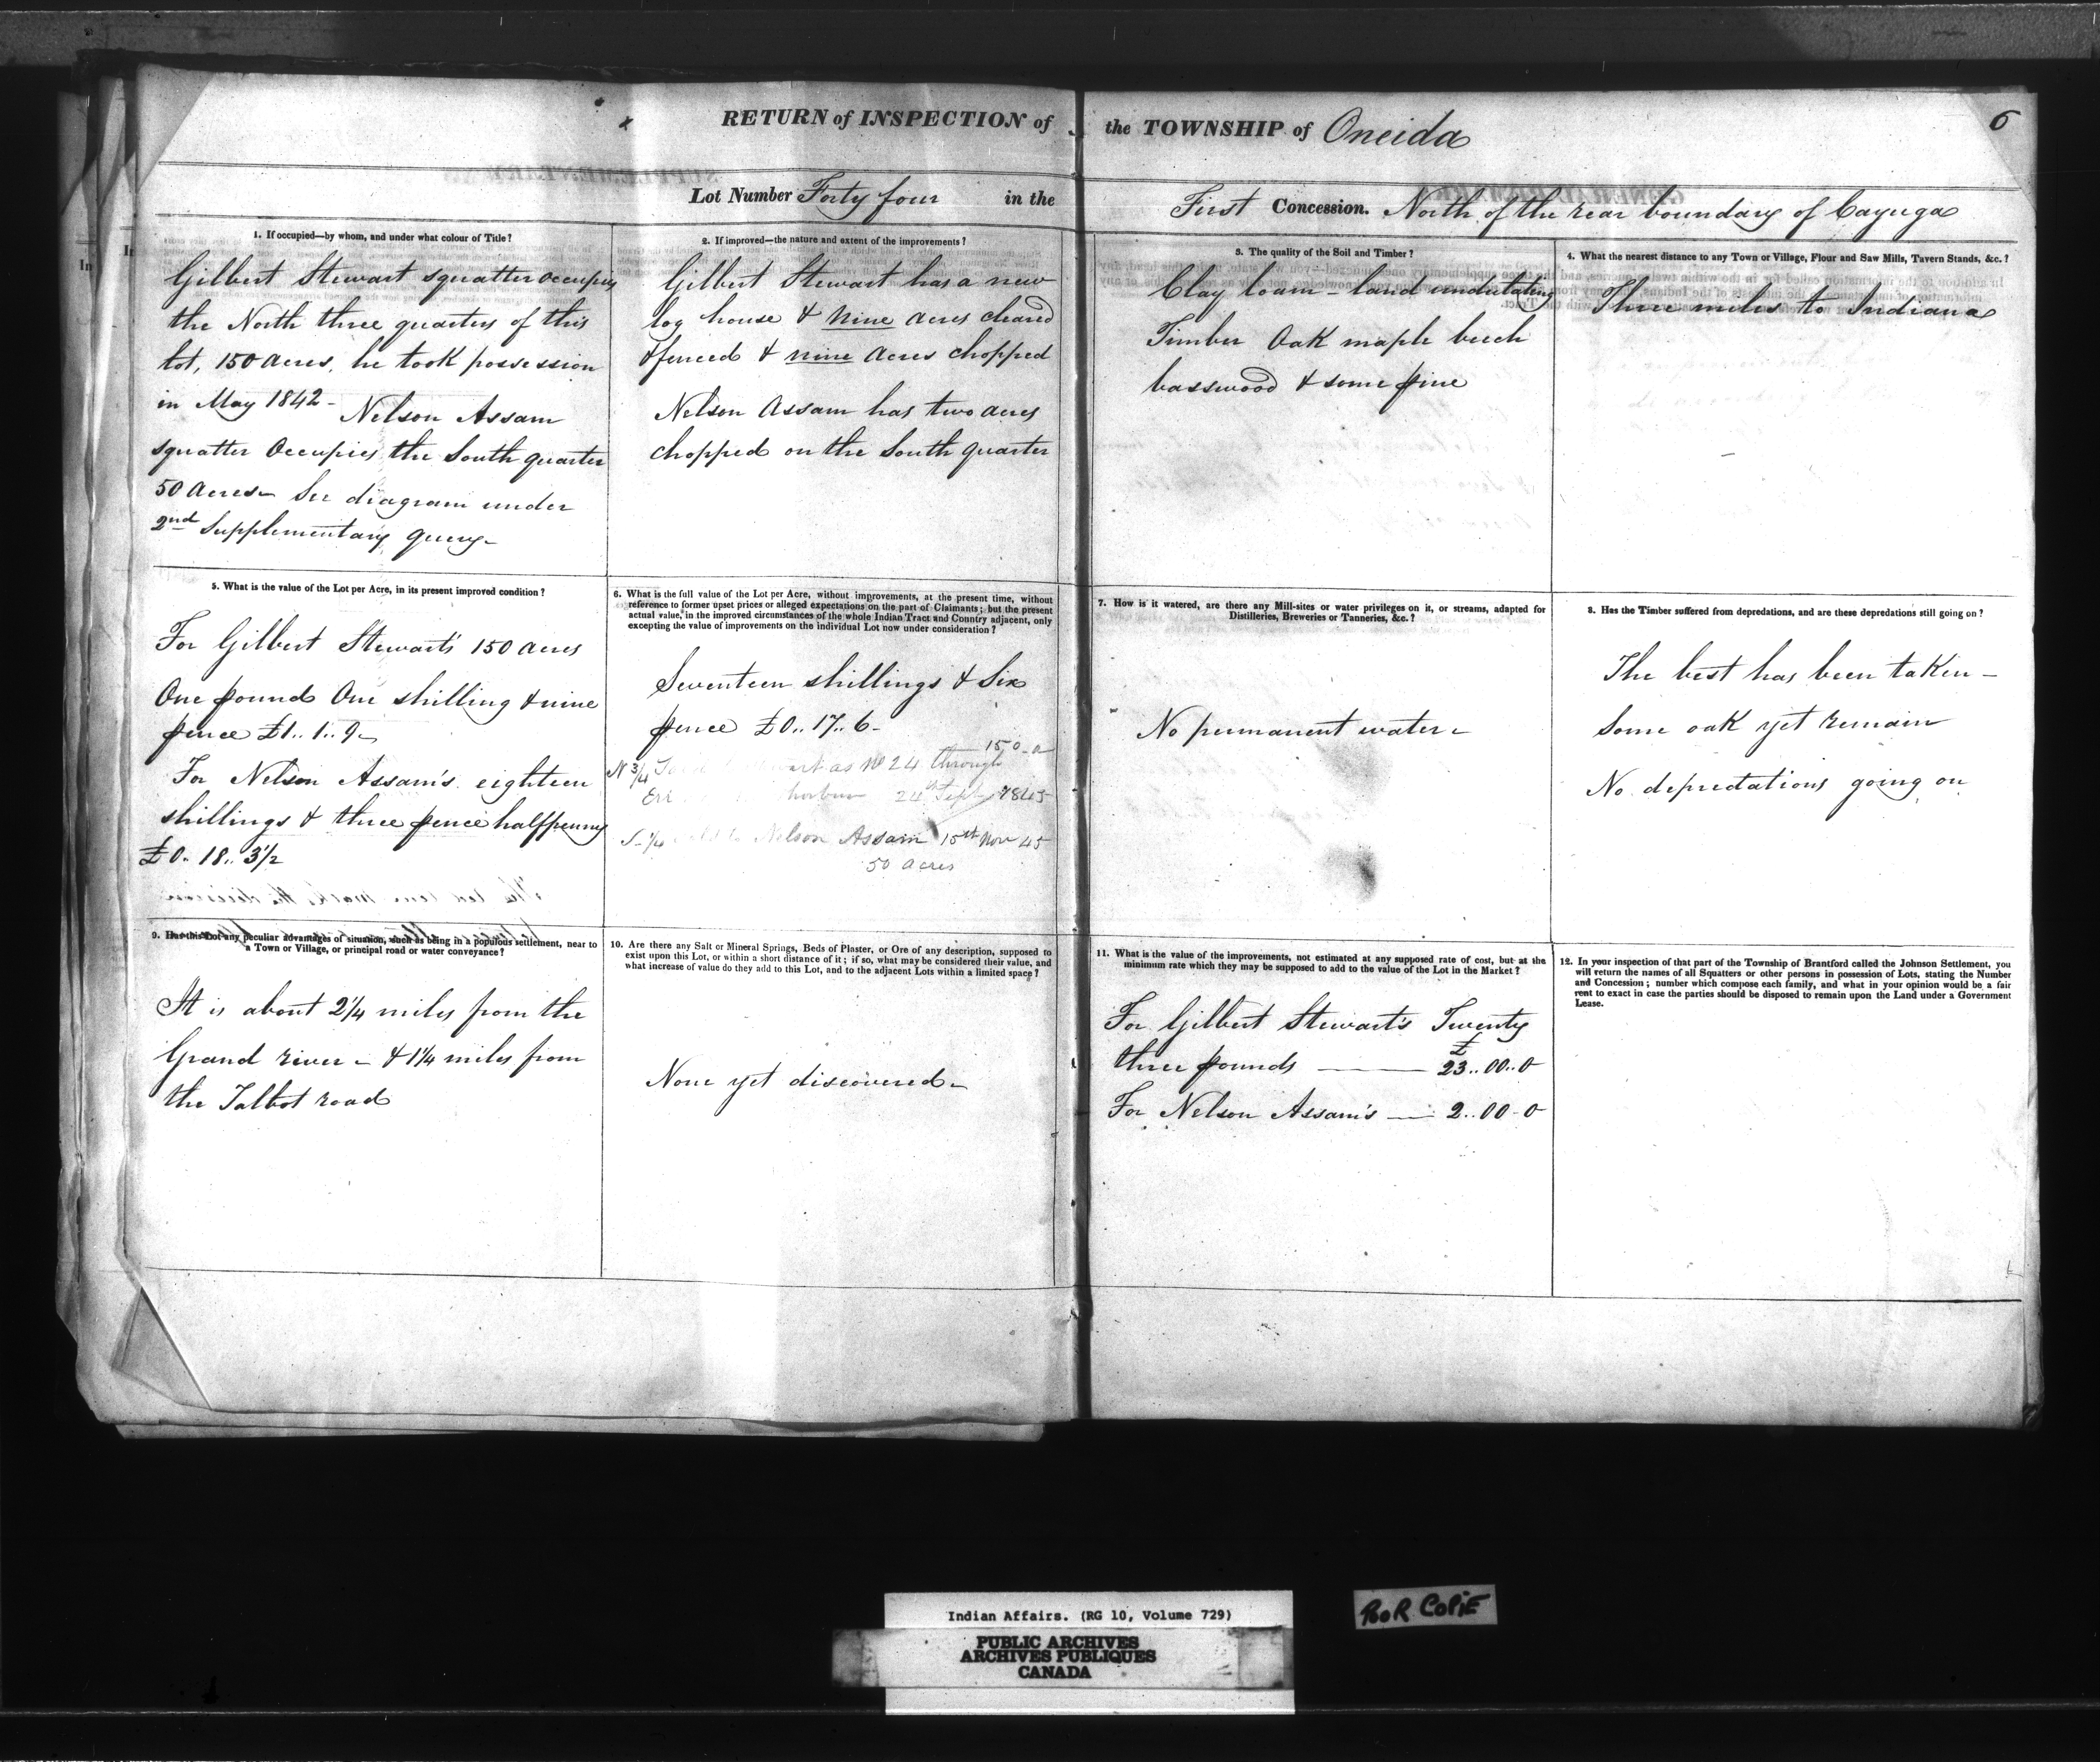 RETURN of INSPECTION of the TOWNSHIP of Oneida
6
Lot Number Forty four in the First Concession. North of the rear boundary of Cayuga
1. If occupied—by whom, and under what colour of Title?
Gilbert Stewart squatter occupies
the North three quarters of this
lot, 150 acres, he took possession
in May 1842 - Nelson Assam
squatter Occupies the South quarter
50 Acres - See diagram under
2nd Supplementary query -
2. If improved—the nature and extent of the improvements?
Gilbert Stewart has a new
log house & Nine acres cleared
& fenced & nine acres chopped
Nelson Assam has two acres
chopped on the South quarter
3. The quality of the Soil and Timber?
Clay loam - land undulating
Timber Oak maple beech
basswood & some pine
4. What the nearest distance to any Town or Village, Flour and Saw Mills, Tavern Stands, &c.?
Three miles to Indiana
5. What is the value of the Lot per Acre, in its present improved condition?
For Gilbert Stewart's 150 acres
One pound One shilling & nine
pence £1.. 1.. 9 -
For Nelson Assam's eighteen
shillings & three pence halfpenny
£0. 18.. 3½
6. What is the full value of the Lot per Acre, without improvements, at the present time, without
reference to former upset prices or alleged expectations on the part of Claimants; but the present
actual value, in the improved circumstances of the whole Indian Tract and Country adjacent, only
excepting the value of improvements on the individual Lot now under consideration?
Seventeen shillings & Six
pence £0.. 17.. 6 -
150 - a
N 3/4 as No 24 through
24th Sept 1845
S. 1/4 Nelson Assam 15th Nov 45
50 acres
7. How is it watered, are there any Mill-sites or water privileges on it, or streams, adapted for
Distilleries, Breweries or Tanneries, &c.?
No permanent water -
8. Has the Timber suffered from depredations, and are these depredations still going on?
The best has been taken -
Some oak yet remain
No depredations going on
9. Has this Lot any peculiar advantages of situation, such as being in a populous settlement, near to
a Town or Village, or principal road or water conveyance?
It is about 2¼ miles from the
Grand river - & 1¼ miles from
the Talbot road
10. Are there any Salt or Mineral Springs, Beds of Plaster, or Ore of any description, supposed to
exist upon this Lot, or within a short distance of it; if so, what may be considered their value, and
what increase of value do they add to this Lot, and to the adjacent Lots within a limited space?
None yet discovered -
11. What is the value of the improvements, not estimated at any supposed rate of cost, but at the
minimum rate which they may be supposed to add to the value of the Lot in the Market?
For Gilbert Stewart's Twenty
three pounds — £23.. 00.. 0
For Nelson Assam's — 2.. 00 - 0
12. In your inspection of that part of the Township of Brantford called the Johnson Settlement, you
will return the names of all Squatters or other persons in possession of Lots, stating the Number
and Concession; number which compose each family, and what in your opinion would be a fair
rent to exact in case the parties should be disposed to remain upon the Land under a Government
Lease.
Indian Affairs. (RG 10, Volume 729)
PUBLIC ARCHIVES
ARCHIVES PUBLIQUES
CANADA
POOR COPIE